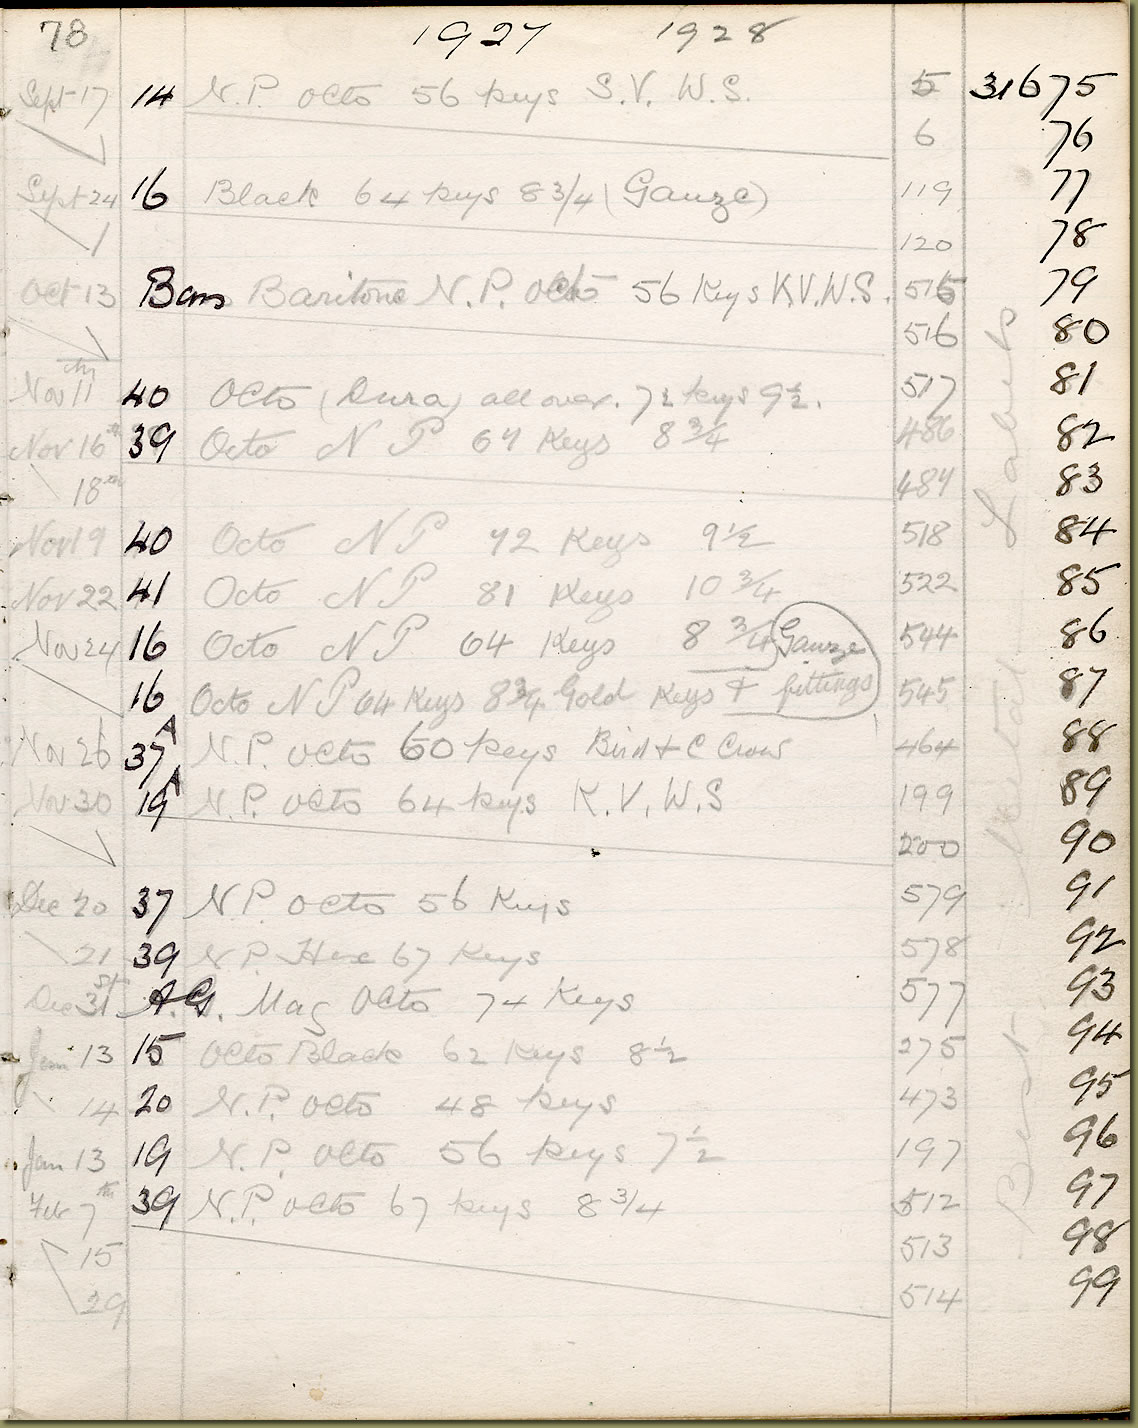 78 1927 1928
Sept 17 14 N.P. Octo 56 keys S.V. W.S. 5 31675
6 76
Sept 24 16 Black 64 keys 8 3/4 (Gauze) 119 77
1 120 78
Oct 13 Bars Baritone N.P. Octo 56 Keys K.V.W.S. 515 79
516 80
Nov 11th 40 Octo (Dura) all over. 72 keys 9½. 517 81
Nov 16th 39 Octo N P 67 Keys 8 3/4 486 82
18th 487 83
Nov 19 40 Octo N P 72 Keys 9½ 518 84
Nov 22 41 Octo N P 81 Keys 10 3/4 522 85
Nov 24 16 Octo N P 64 Keys 8 3/4 Gauze 544 86
16 Octo N P 64 Keys 8 3/4 Gold Keys + fittings 545 87
Nov 26 37A N.P. Octo 60 keys 464 88
Nov 30 19A N.P. Octo 64 keys K.V.W.S 199 89
200 90
Dec 20 37 N.P. Octo 56 Keys 579 91
21 39 N.P. Hex 67 Keys 578 92
Dec 31st A.G. Mag Octo 74 Keys 577 93
Jan 13 15 Octo Black 62 Keys 8½ 275 94
14 20 N.P. Octo 48 keys 473 95
Jan 13 19 N.P. Octo 56 keys 7½ 197 96
Feb 7th 39 N.P. Octo 67 keys 8 3/4 512 97
15 513 98
29 514 99
Best